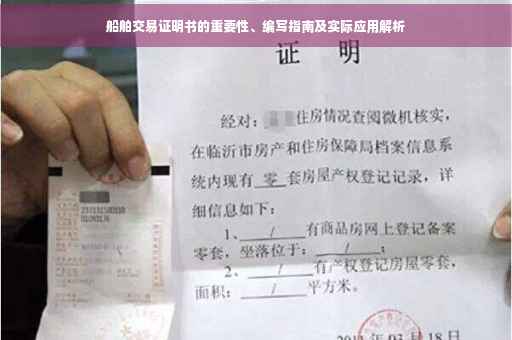 船舶交易证明书的重要性、编写指南及实际应用解析
证 明
经对：住房情况查阅微机核实，
在临沂市房产和住房保障局档案信息系
统内现有 零 套房屋产权登记记录，详
细信息如下：
1、 / 有商品房网上登记备案
零套，坐落位于： / ；
2、 / 有产权登记房屋零套，
面积： / 平方米。
03月18日